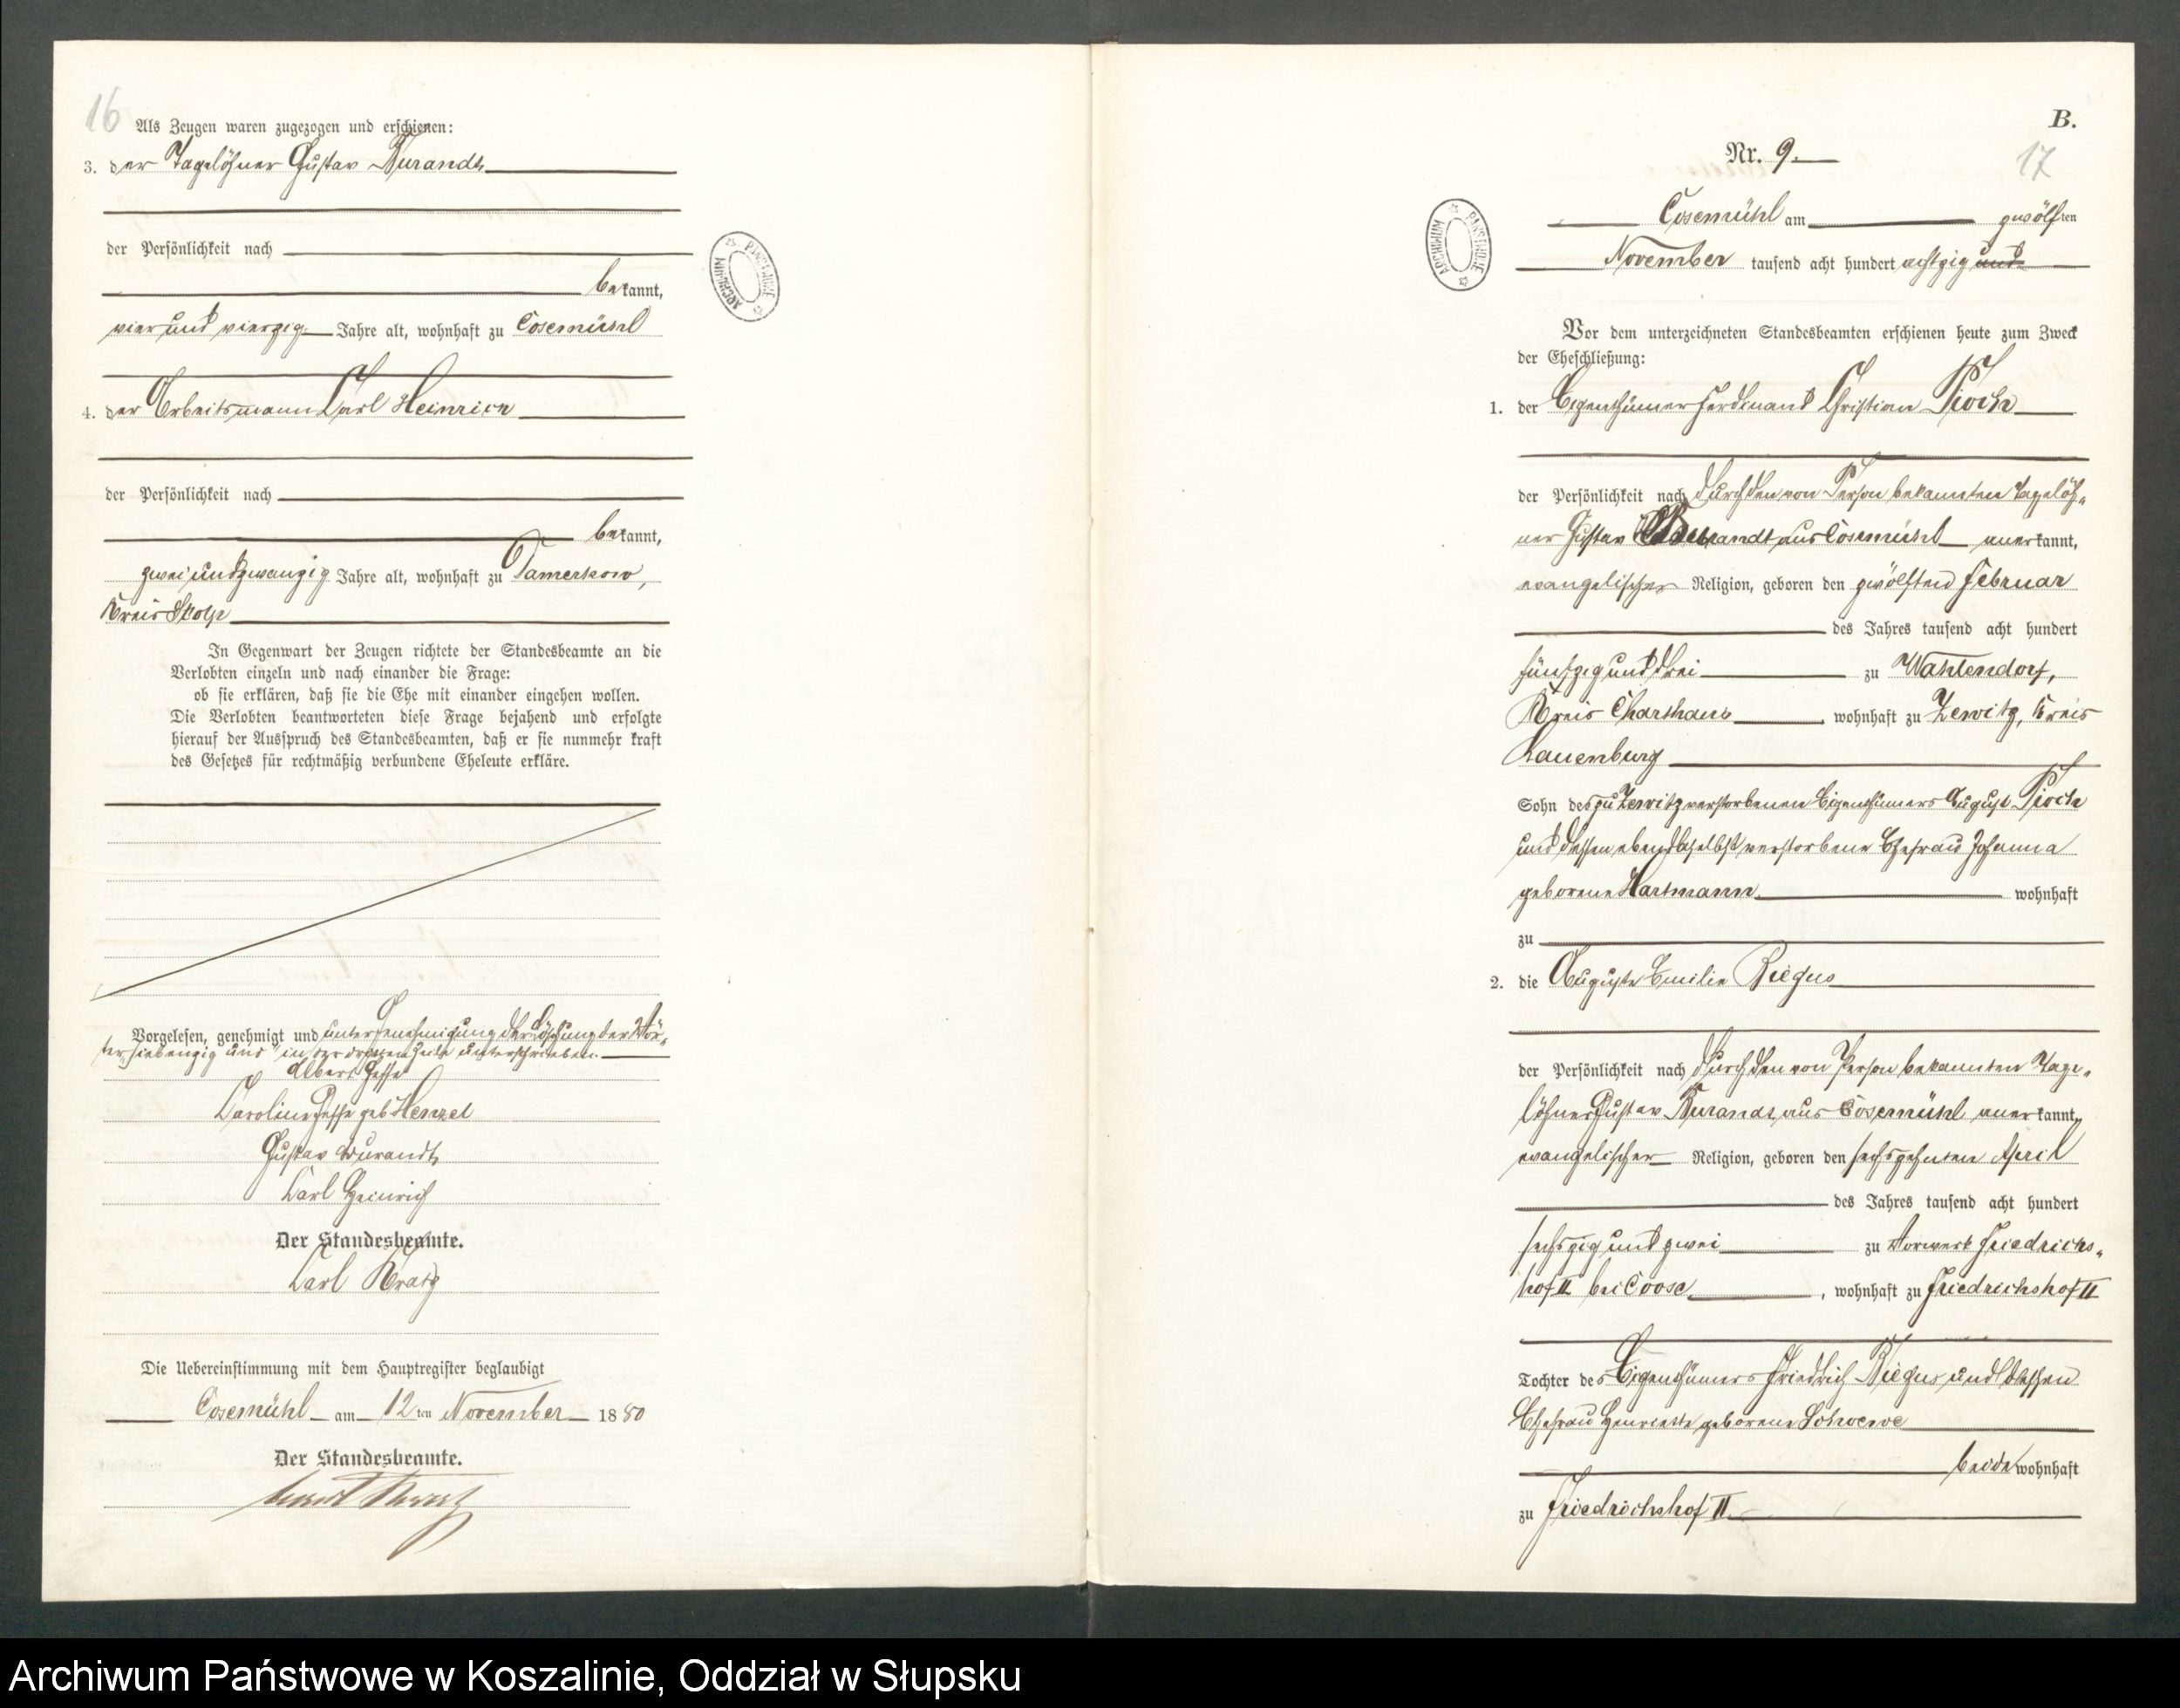 16
Als Zeugen waren zugezogen und erschienen:
3. der Tagelöhner Gustav Kurandt
der Persönlichkeit nach
bekannt,
vier und vierzig Jahre alt, wohnhaft zu Cosemühl
4. der Arbeitsmann Carl Heinrich
der Persönlichkeit nach
bekannt,
zwei und zwanzig Jahre alt, wohnhaft zu Damerkow,
Kreis Stolp
In Gegenwart der Zeugen richtete der Standesbeamte an die
Verlobten einzeln und nach einander die Frage:
ob sie erklären, daß sie die Ehe mit einander eingehen wollen.
Die Verlobten beantworteten diese Frage bejahend und erfolgte
hierauf der Ausspruch des Standesbeamten, daß er sie nunmehr kraft
des Gesetzes für rechtmäßig verbundene Eheleute erkläre.
Vorgelesen, genehmigt und unter Genehmigung der Löschung der Wör-
ter „siebenzig und" in der dritten Zeile unterschrieben.
Albert Hesse
Caroline Hesse geb Henzel
Gustav Kurandt
Carl Heinrich
Der Standesbeamte.
Carl Kratz
Die Uebereinstimmung mit dem Hauptregister beglaubigt
Cosemühl am 12ten November 1880
Der Standesbeamte.
ARCHIWUM PAŃSTWOWE
B.
Nr. 9.
17
Cosemühl am zwölften
November tausend acht hundert achtzig und
ARCHIWUM PAŃSTWOWE
Vor dem unterzeichneten Standesbeamten erschienen heute zum Zweck
der Eheschließung:
1. der Eigenthümer Ferdinand Christian Pioch
der Persönlichkeit nach durch den von Person bekannten Tagelöh-
ner Gustav Kurandt aus Cosemühl anerkannt,
evangelischer Religion, geboren den zwölften Februar
des Jahres tausend acht hundert
fünfzig und drei zu Wahlendorf,
Kreis Charthaus, wohnhaft zu Zewitz, Kreis
Lauenburg
Sohn des zu Zewitz verstorbenen Eigenthümers August Pioch
und dessen ebendaselbst verstorbene Ehefrau Johanna
geborene Hartmann wohnhaft
zu
2. die Auguste Emilie Biegus
der Persönlichkeit nach durch den von Person bekannten Tage-
löhner Gustav Kurandt aus Cosemühl anerkannt,
evangelischer Religion, geboren den sechszehnten April
des Jahres tausend acht hundert
sechszig und zwei zu Vorwerk Friedrichs-
hof II bei Coose, wohnhaft zu Friedrichshof II
Tochter des Eigenthümers Friedrich Biegus und dessen
Ehefrau Henriette geborene Schwewe
beide wohnhaft
zu Friedrichshof II.
Archiwum Państwowe w Koszalinie, Oddział w Słupsku